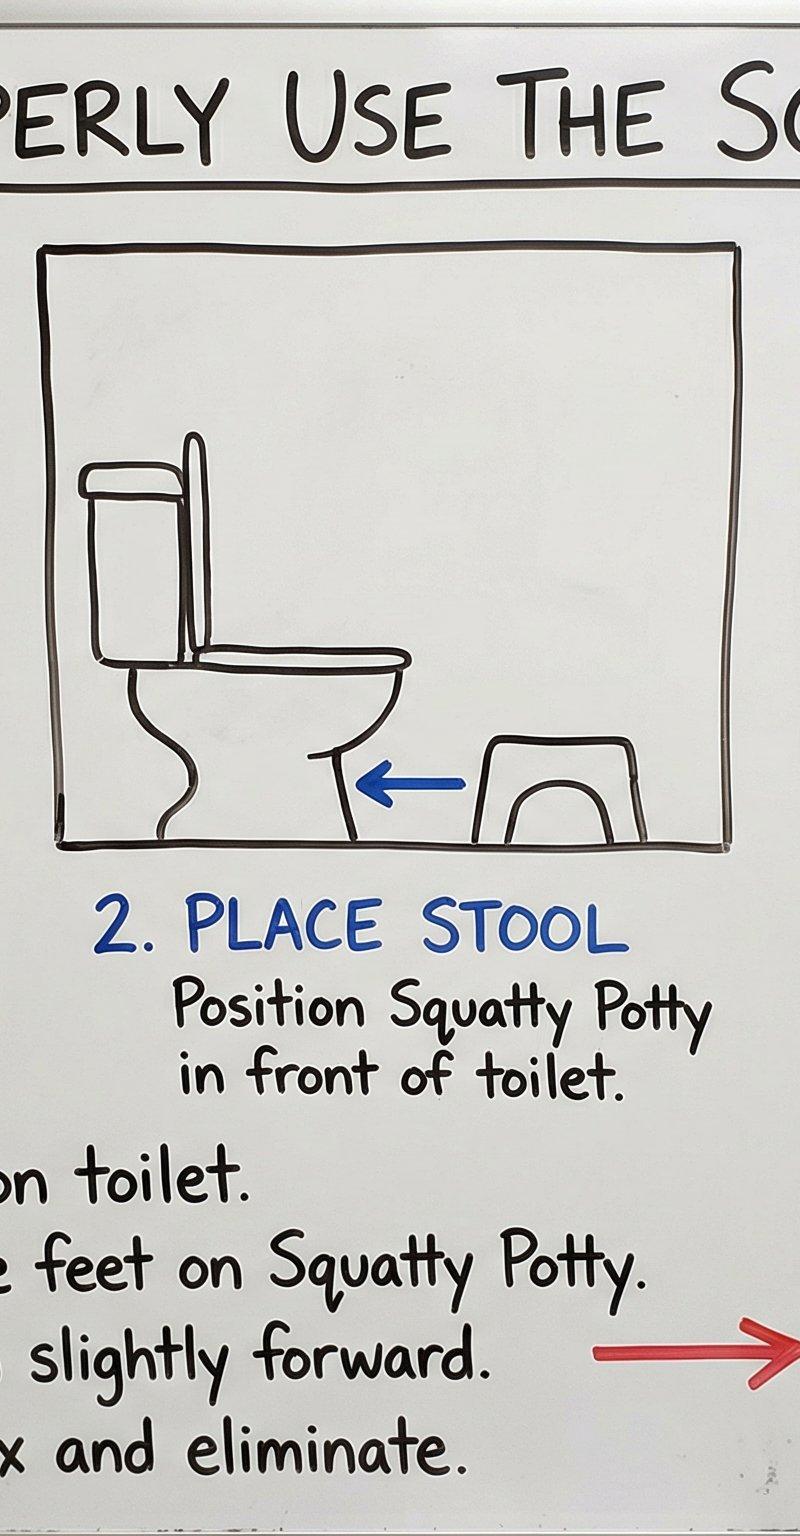 PERLY USE THE SQ
2. PLACE STOOL
Position Squatty Potty
in front of toilet.
on toilet.
e feet on Squatty Potty.
slightly forward.
x and eliminate.